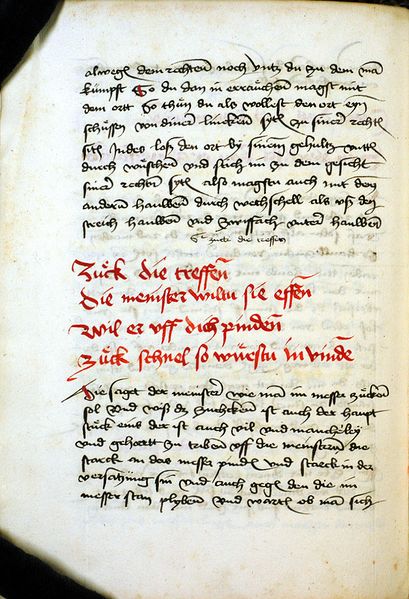 alwegñ dem rechten noch vntz du zu dem man
kümpst So du dan in erraichen magst mit
dem ortt So thün du als wollest den ort eyn
schüssen von diner lincken sytñ zu siner recht
sitñ Indes loß den ort by sinem gehultz vntten
durch wüschen vnd stich im zu dem gesicht
siner rechten sytñ also magstu auch mit den
anderen hauwen durch wechsell als vß den
streich hauwen vnd zwifach vnter hauwen
zuck die treffen
Zuck die treffen
Die meinster wiltu sie effen
Wil er vff dich pinden
Zuck schnel so würestu in vinde
Hie sagt der meinster wie man im messer zucken
sol vnd wiß dz zuchcken ist auch der haupt
stück eins der ist auch vil vnd mancherley
vnd gehortt zu triben vff die meinsteren die
starck an das messer pindñ vnd starck in der
versatzüng sin vnd auch gegñ den die im
messer stan plyben vnd wartñ ob man sich